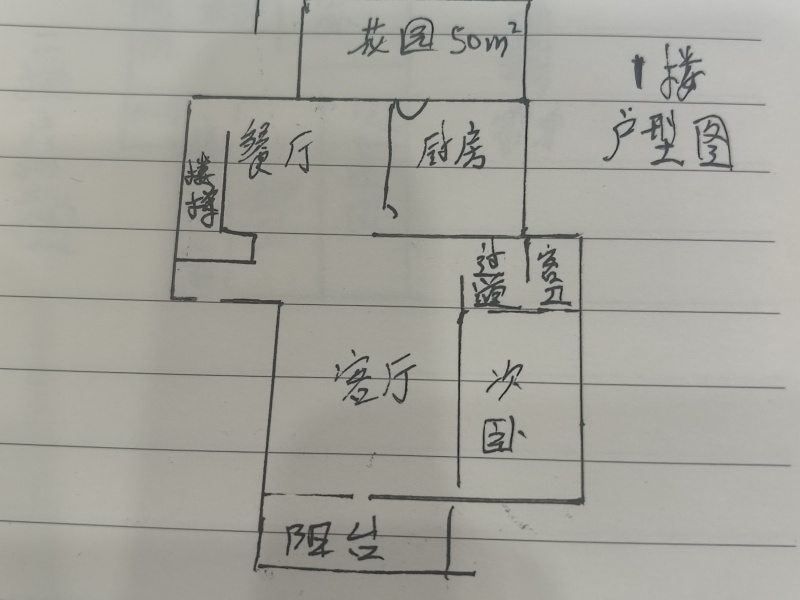 花园 50m²
1楼
户型图
餐厅
厨房
楼梯
过道
客卫
客厅
次卧
阳台